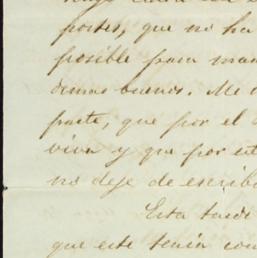 postes, que no ha
posible para man
demas buenos. Me d
parte, que por el
viva y que por est
no deje de escribi
Esta tarde
que este tenia con